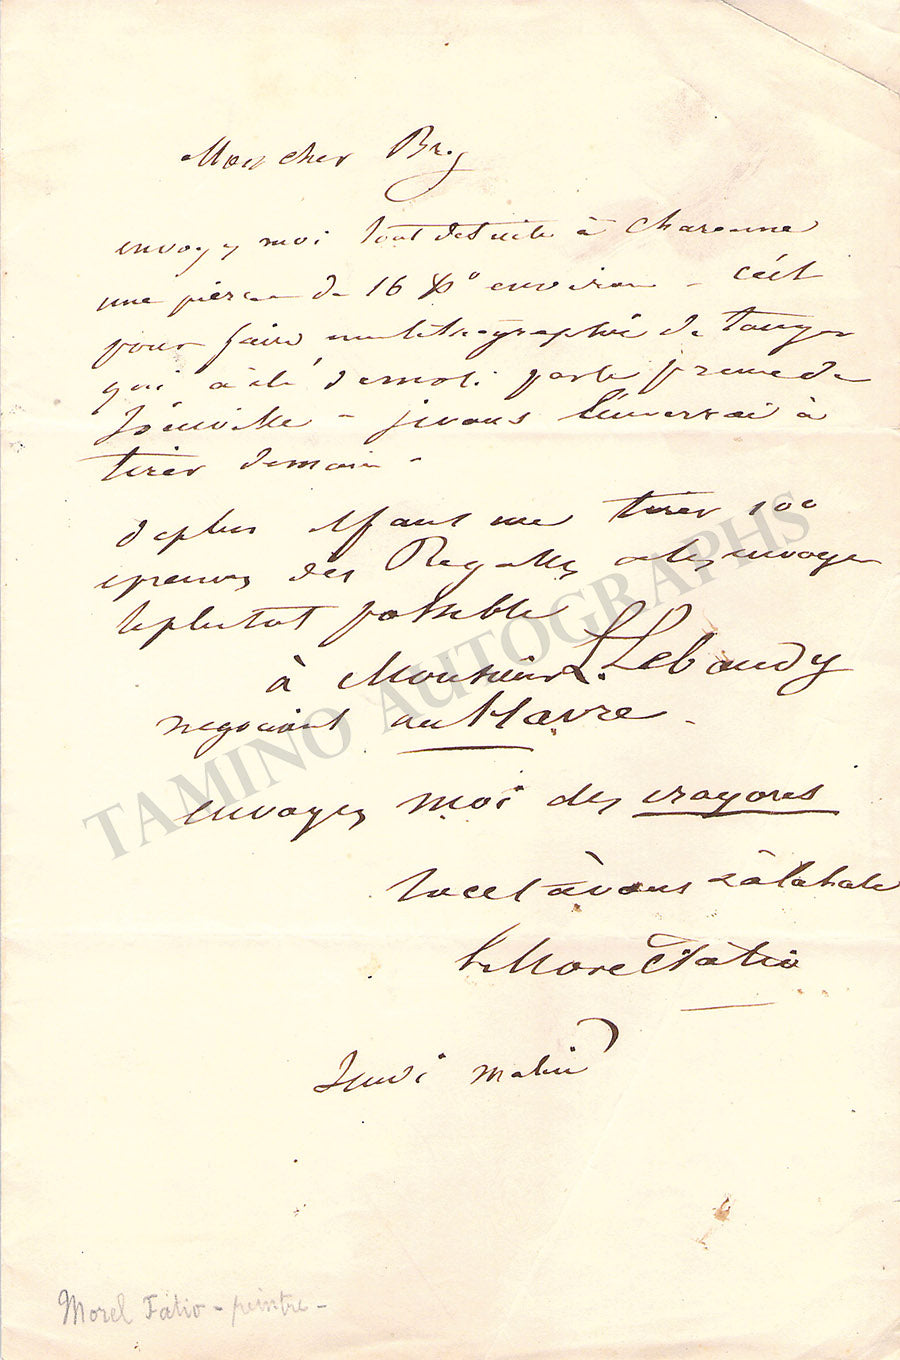 Mon cher Bry
envoyez moi tout de suite à Charonne
une pierre de 16 po environ - c'est
pour faire une lithographie de Tanger
qui a été demoli par le prince de
Joinville - je vous l'enverrai à
tirer demain -
de plus il faut me tirer 100
epreuves des Regattes et les envoyer
le plutot possible
à Monsieur Lebaudy
negociant au Havre -
envoyez moi des crayons
tout à vous à la hate
Morel Fatio
Jeudi matin
Morel Fatio - peintre -
TAMINO AUTOGRAPHS